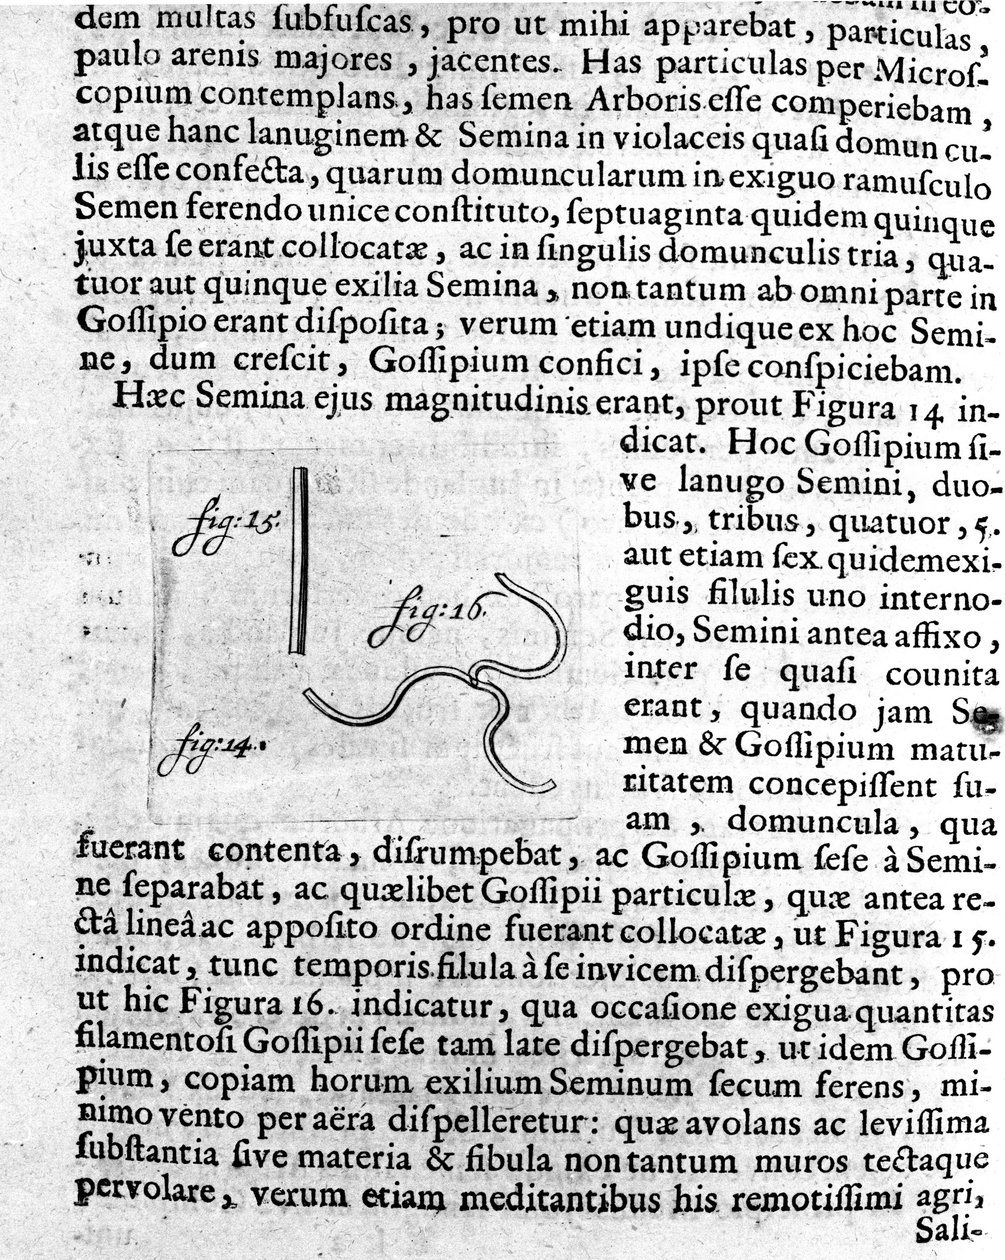 in co-
dem multas ſubfuſcas, pro ut mihi apparebat, particulas,
paulo arenis majores, jacentes. Has particulas per Microſ-
copium contemplans, has ſemen Arboris eſſe comperiebam,
atque hanc lanuginem & Semina in violaceis quaſi domuncu-
lis eſſe confecta, quarum domuncularum in exiguo ramuſculo
Semen ferendo unice conſtituto, ſeptuaginta quidem quinque
juxta ſe erant collocatæ, ac in ſingulis domunculis tria, qua-
tuor aut quinque exilia Semina, non tantum ab omni parte in
Goſſipio erant diſpoſita; verum etiam undique ex hoc Semi-
ne, dum creſcit, Goſſipium confici, ipſe conſpiciebam.
Hæc Semina ejus magnitudinis erant, prout Figura 14 in-
dicat. Hoc Goſſipium ſi-
ve lanugo Semini, duo-
bus, tribus, quatuor, 5.
aut etiam ſex quidem exi-
guis filulis uno interno-
dio, Semini antea affixo,
inter ſe quaſi counita
erant, quando jam Se-
men & Goſſipium matu-
ritatem concepiſſent ſu-
am, domuncula, qua
fig: 15.
fig: 16.
fig: 14.
fuerant contenta, diſrumpebat, ac Goſſipium ſeſe à Semi-
ne ſeparabat, ac quælibet Goſſipii particulæ, quæ antea re-
ctâ lineâ ac appoſito ordine fuerant collocatæ, ut Figura 15.
indicat, tunc temporis filula à ſe invicem diſpergebant, pro
ut hic Figura 16. indicatur, qua occaſione exigua quantitas
filamentoſi Goſſipii ſeſe tam late diſpergebat, ut idem Goſſi-
pium, copiam horum exilium Seminum ſecum ferens, mi-
nimo vento per aëra diſpelleretur: quæ avolans ac leviſſima
ſubſtantia ſive materia & fibula non tantum muros tectaque
pervolare, verum etiam meditantibus his remotiſſimi agri,
Sali-